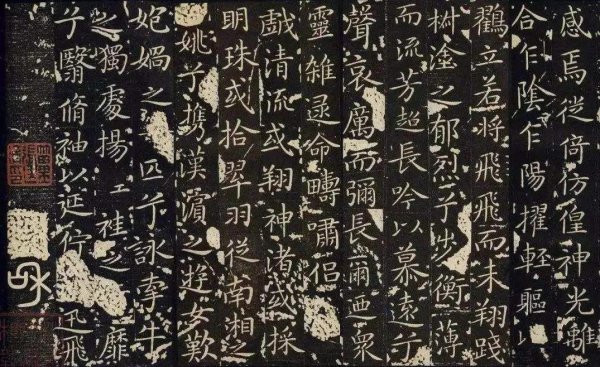 感焉徙倚仿偟神光離
合乍陰乍陽擢輕軀
鸖立若將飛飛而未翔踐
椒塗之郁烈兮步衡薄
而流芳超長吟以慕遠兮
聲哀厲而彌長爾迺眾
靈雜遝命疇嘯侶
戲清流或翔神渚或採
明珠或拾翠羽從南湘之
姚兮携漢濱之遊女歎
妃媧之匹兮詠牽牛
之獨處揚袿之靡
兮翳脩袖以延佇迅飛